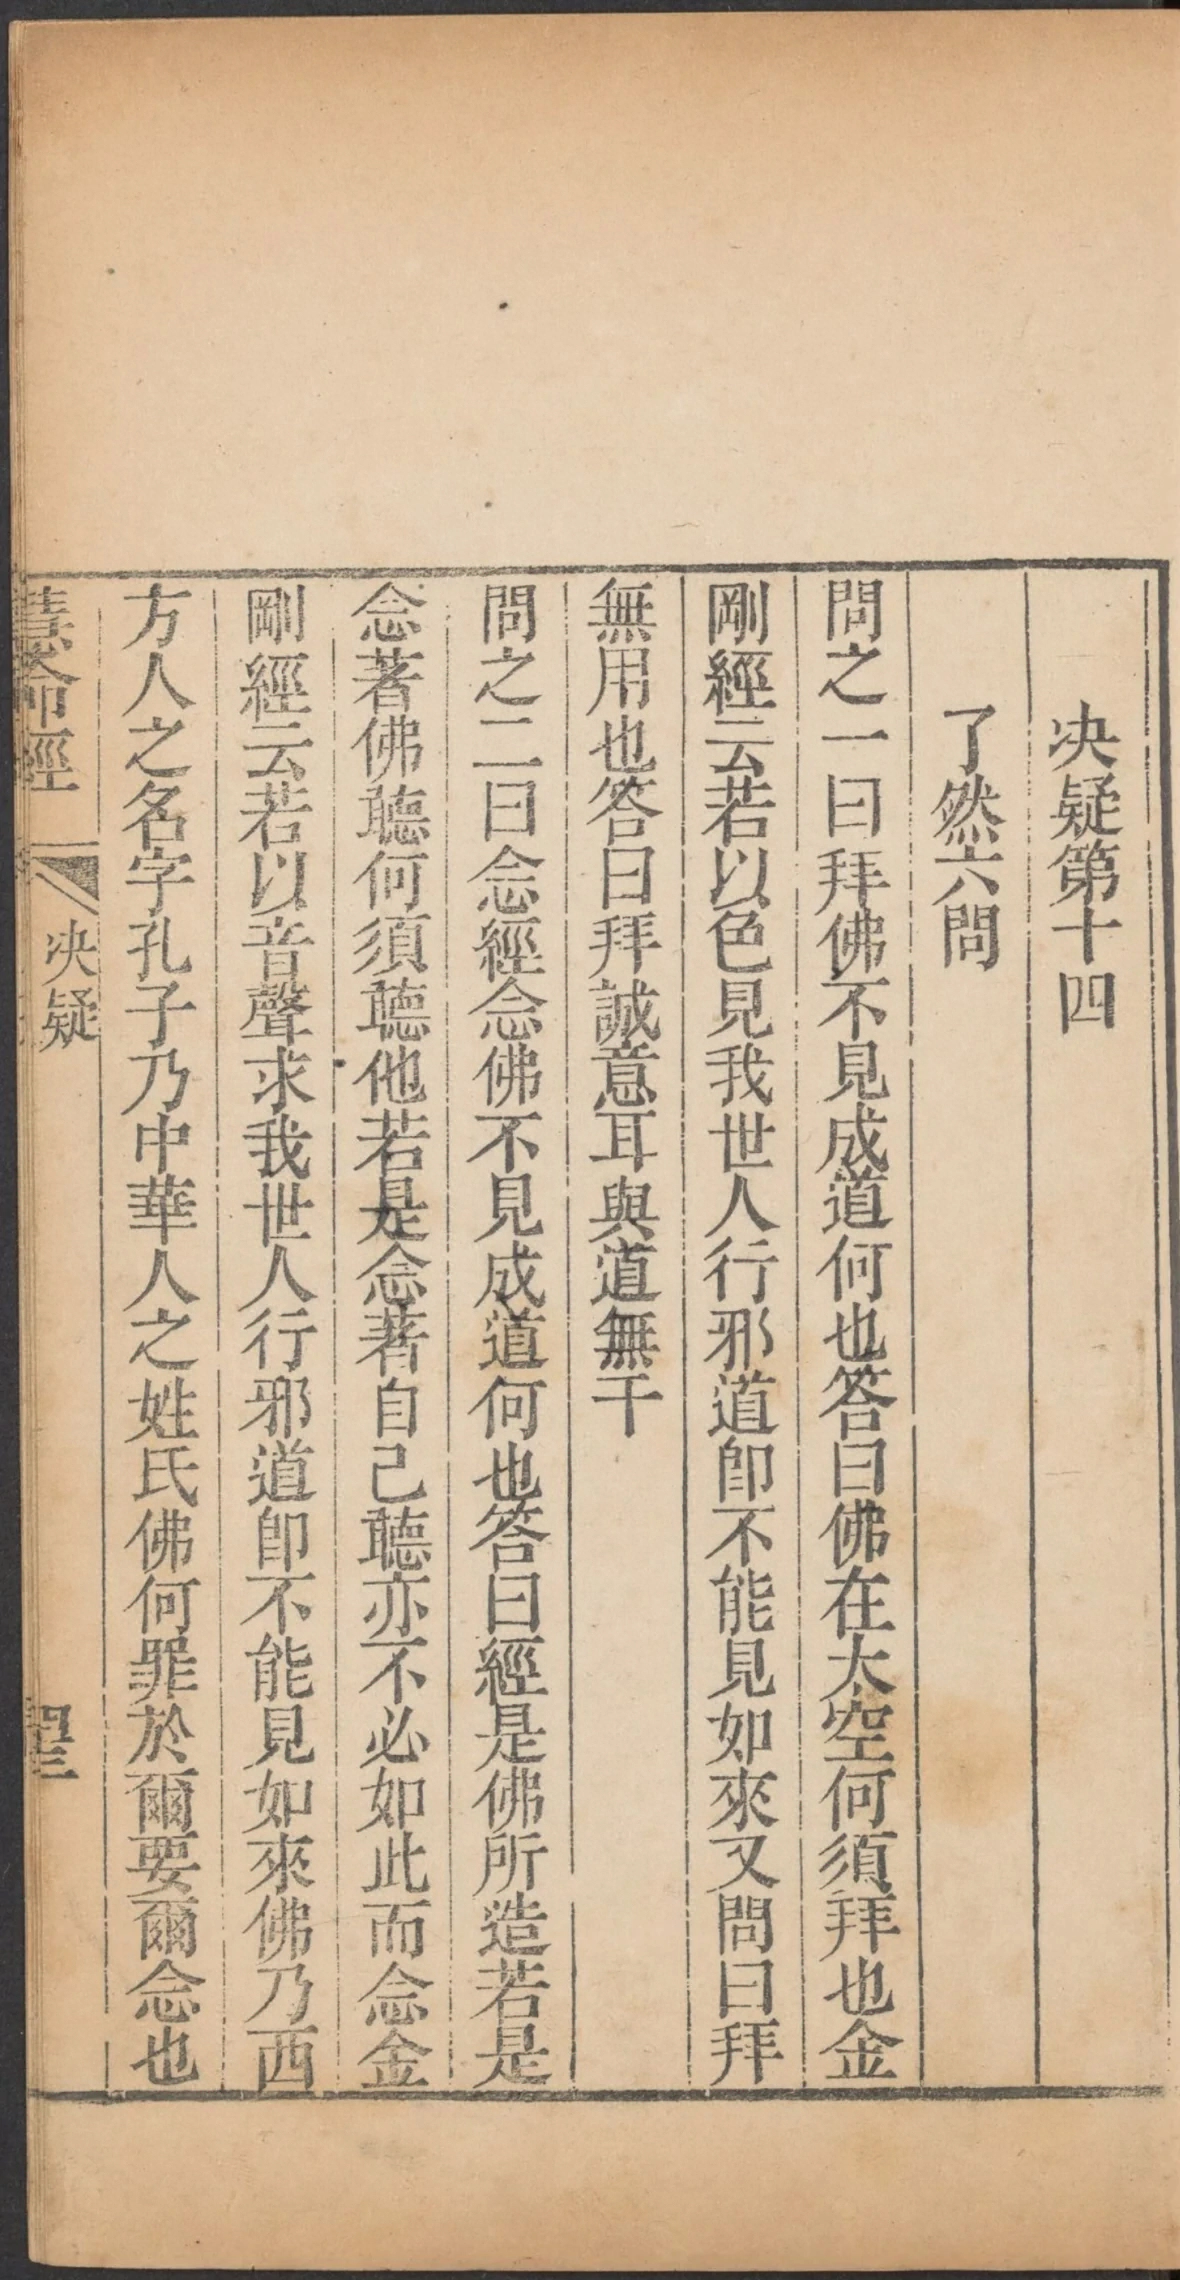 决疑第十四
了然六問
問之一曰拜佛不見成道何也答曰佛在太空何須拜也金
剛經云若以色見我世人行邪道卽不能見如來又問曰拜
無用也答曰拜誠意耳與道無干
問之二曰念經念佛不見成道何也答曰經是佛所造若是
念著佛聽何須聽他若是念著自己聽亦不必如此而念金
剛經云若以音聲求我世人行邪道卽不能見如來佛乃西
方人之名字孔子乃中華人之姓氏佛何罪於爾要爾念也
慧命經
决疑
四三